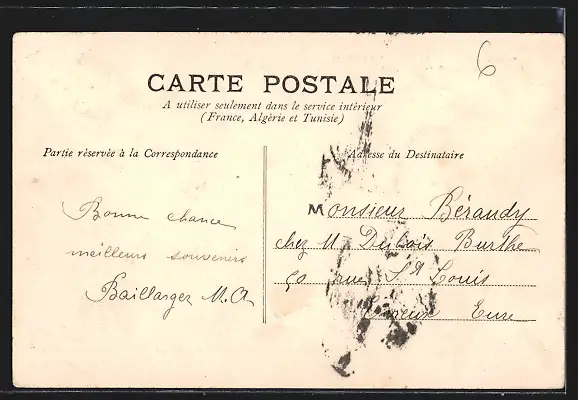 6
CARTE POSTALE
A utiliser seulement dans le service intérieur
(France, Algérie et Tunisie)
Partie réservée à la Correspondance
Adresse du Destinataire
Bonne chance
meilleurs souvenirs
Baillarger M.A.
Monsieur Béraudy
chez M Dubois Burthe
50 rue St Louis
Evreux Eure